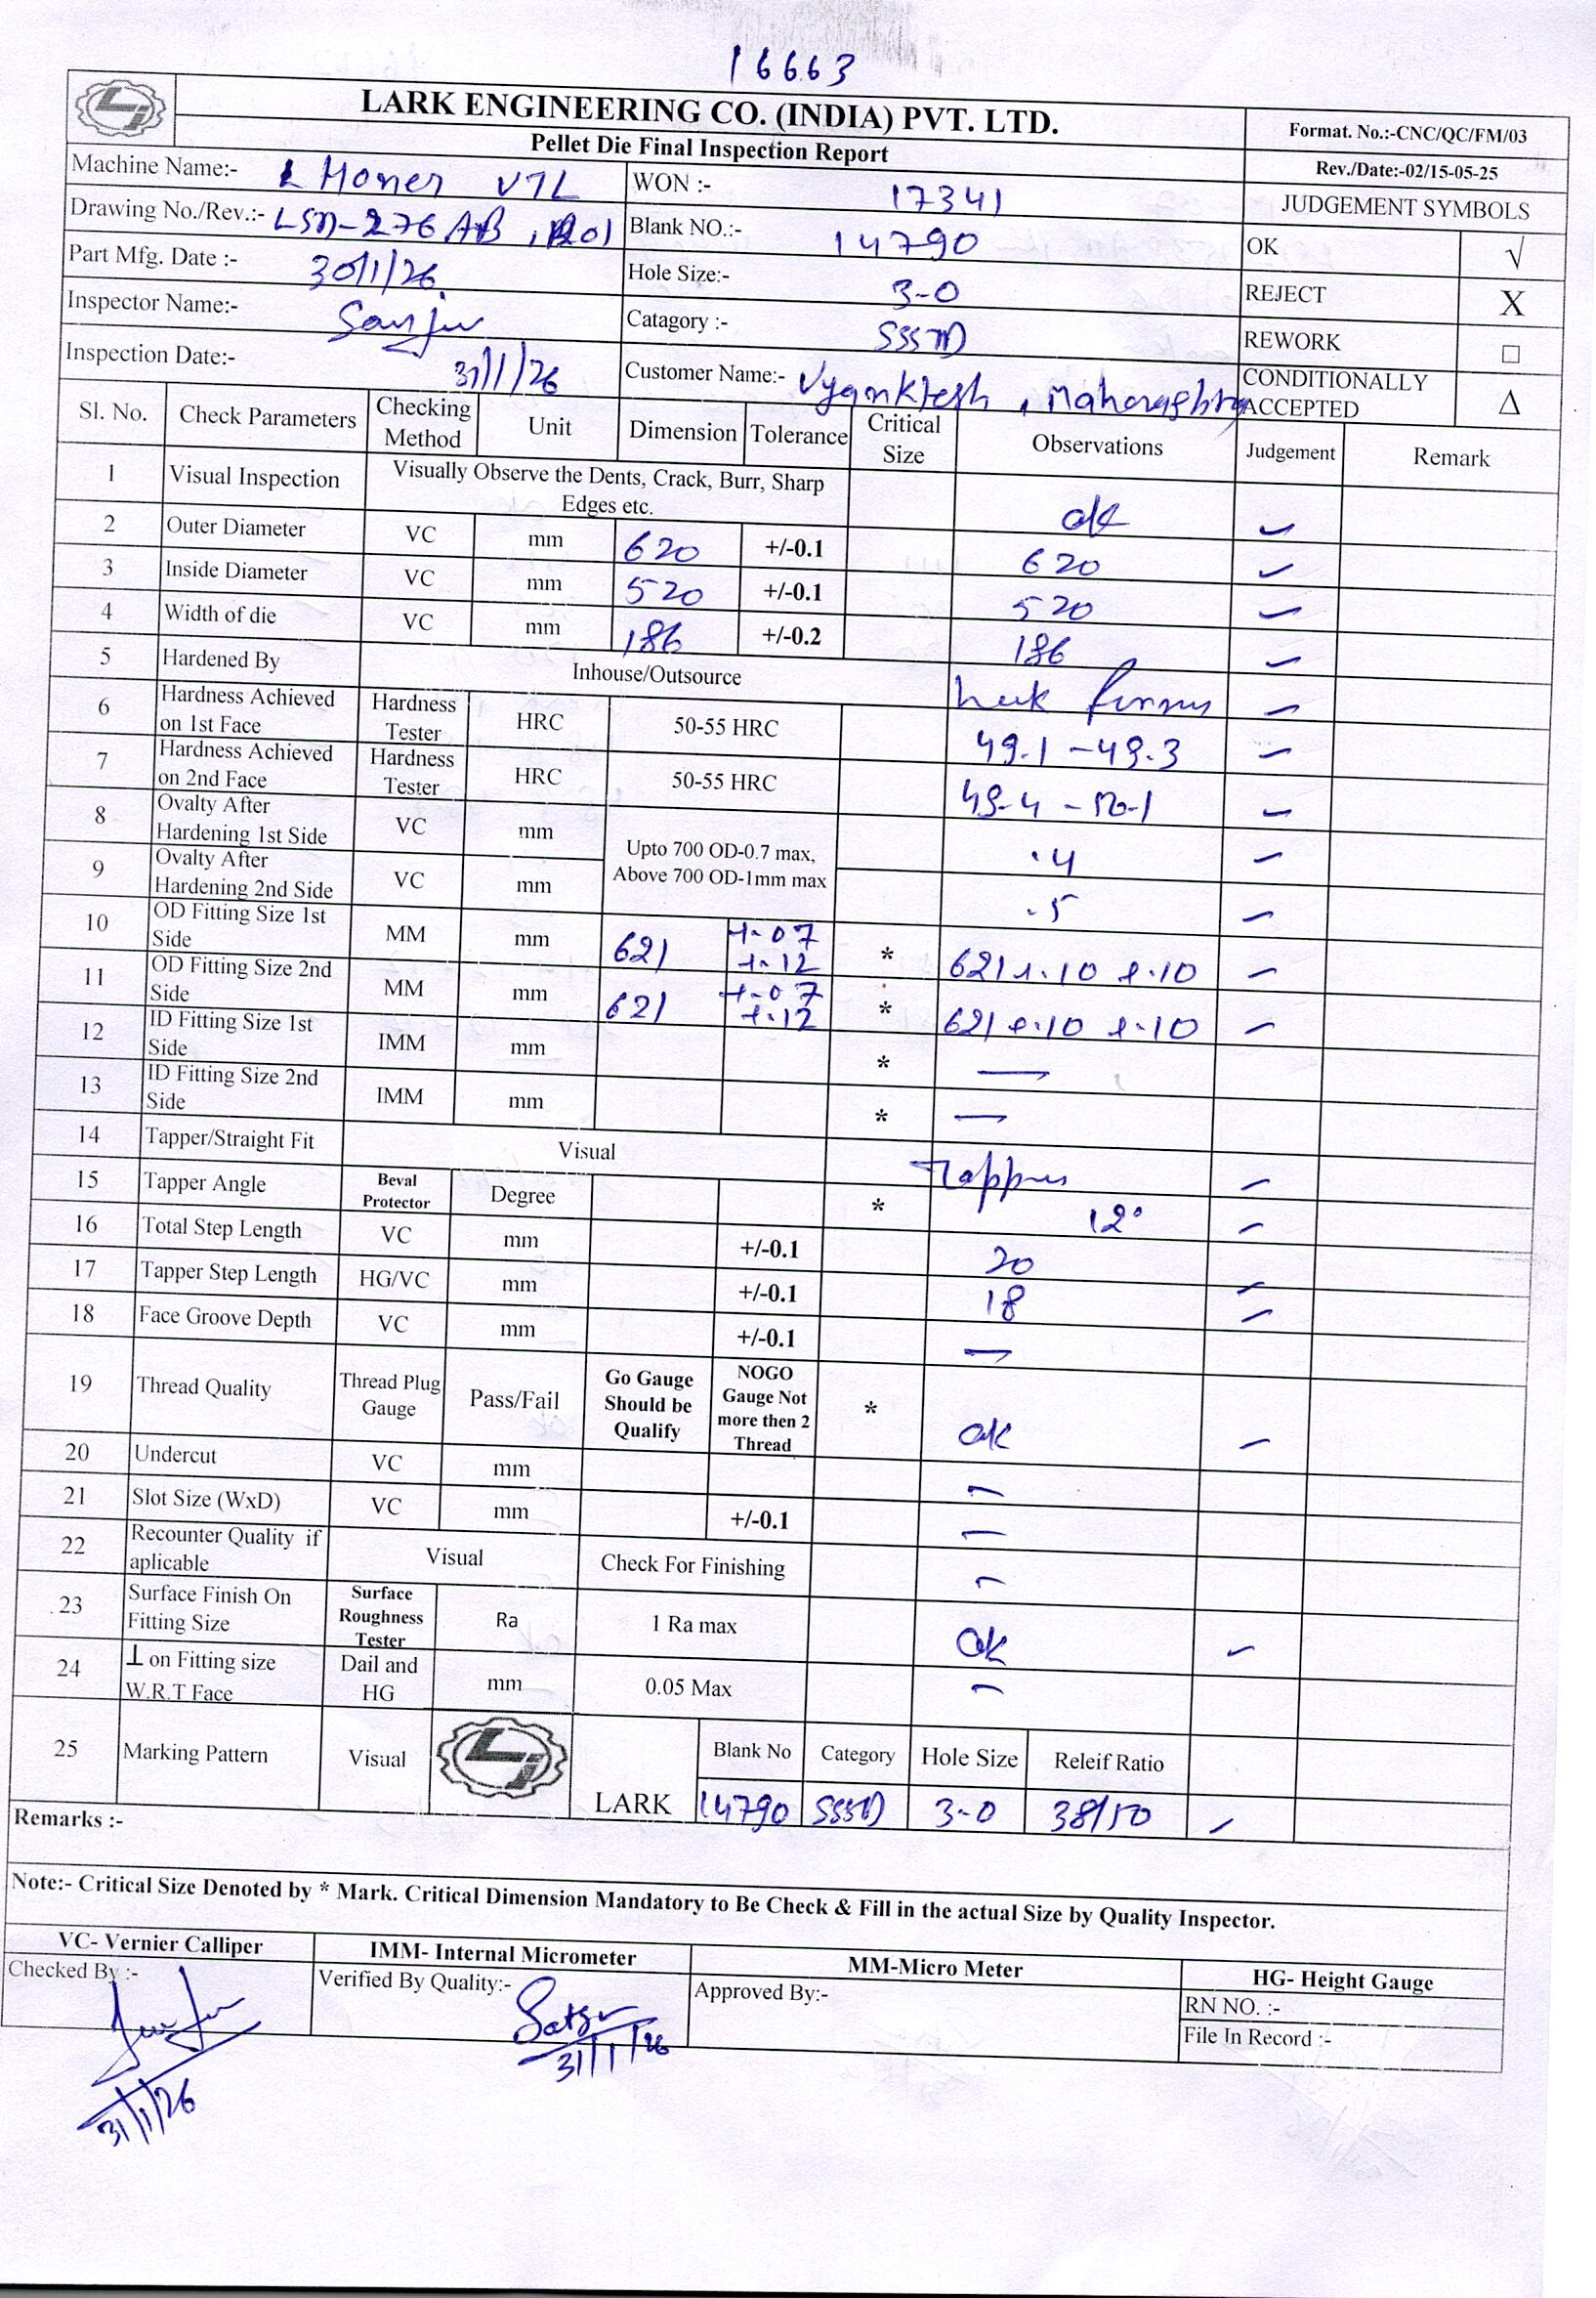 16663
LARK ENGINEERING CO. (INDIA) PVT. LTD.
Pellet Die Final Inspection Report
Format. No.:-CNC/QC/FM/03
Rev./Date:-02/15-05-25
Machine Name:- Honer VTL WON :- 17341 JUDGEMENT SYMBOLS
Drawing No./Rev.:- LSD-276 Blank NO.:- 14790 OK √
Part Mfg. Date :- 30/1/26 Hole Size:- 3-0 REJECT X
Inspector Name:- Sanju Catagory :- REWORK □
Inspection Date:- 31/1/26 Customer Name:- Vyanktesh, Maharashtra CONDITIONALLY ACCEPTED Δ
Sl. No. Check Parameters Checking Method Unit Dimension Tolerance Critical Size Observations Judgement Remark
1 Visual Inspection Visually Observe the Dents, Crack, Burr, Sharp Edges etc. ok ✓
2 Outer Diameter VC mm 620 +/-0.1 620 ✓
3 Inside Diameter VC mm 520 +/-0.1 520 ✓
4 Width of die VC mm 186 +/-0.2 186 ✓
5 Hardened By Inhouse/Outsource ✓
6 Hardness Achieved on 1st Face Hardness Tester HRC 50-55 HRC 49.1 - 49.3 ✓
7 Hardness Achieved on 2nd Face Hardness Tester HRC 50-55 HRC 49.4 - 50.1 ✓
8 Ovalty After Hardening 1st Side VC mm Upto 700 OD-0.7 max, Above 700 OD-1mm max .4 ✓
9 Ovalty After Hardening 2nd Side VC mm .5 ✓
10 OD Fitting Size 1st Side MM mm 621 +.07 +.12 * 621 +.10 +.10 ✓
11 OD Fitting Size 2nd Side MM mm 621 +.07 +.12 * 621 +.10 +.10 ✓
12 ID Fitting Size 1st Side IMM mm * —
13 ID Fitting Size 2nd Side IMM mm * —
14 Tapper/Straight Fit Visual Tapper ✓
15 Tapper Angle Beval Protector Degree * 12° ✓
16 Total Step Length VC mm +/-0.1 20 ✓
17 Tapper Step Length HG/VC mm +/-0.1 18 ✓
18 Face Groove Depth VC mm +/-0.1 —
19 Thread Quality Thread Plug Gauge Pass/Fail Go Gauge Should be Qualify NOGO Gauge Not more then 2 Thread * ok ✓
20 Undercut VC mm —
21 Slot Size (WxD) VC mm +/-0.1 —
22 Recounter Quality if aplicable Visual Check For Finishing —
23 Surface Finish On Fitting Size Surface Roughness Tester Ra 1 Ra max ok ✓
24 ⊥ on Fitting size W.R.T Face Dail and HG mm 0.05 Max —
25 Marking Pattern Visual LARK Blank No Category Hole Size Releif Ratio
14790 3-0 38/50 ✓
Remarks :-
Note:- Critical Size Denoted by * Mark. Critical Dimension Mandatory to Be Check & Fill in the actual Size by Quality Inspector.
VC- Vernier Calliper IMM- Internal Micrometer MM-Micro Meter HG- Height Gauge
Checked By :- Verified By Quality:- Approved By:- RN NO. :-
File In Record :-
31/1/26
31/1/26